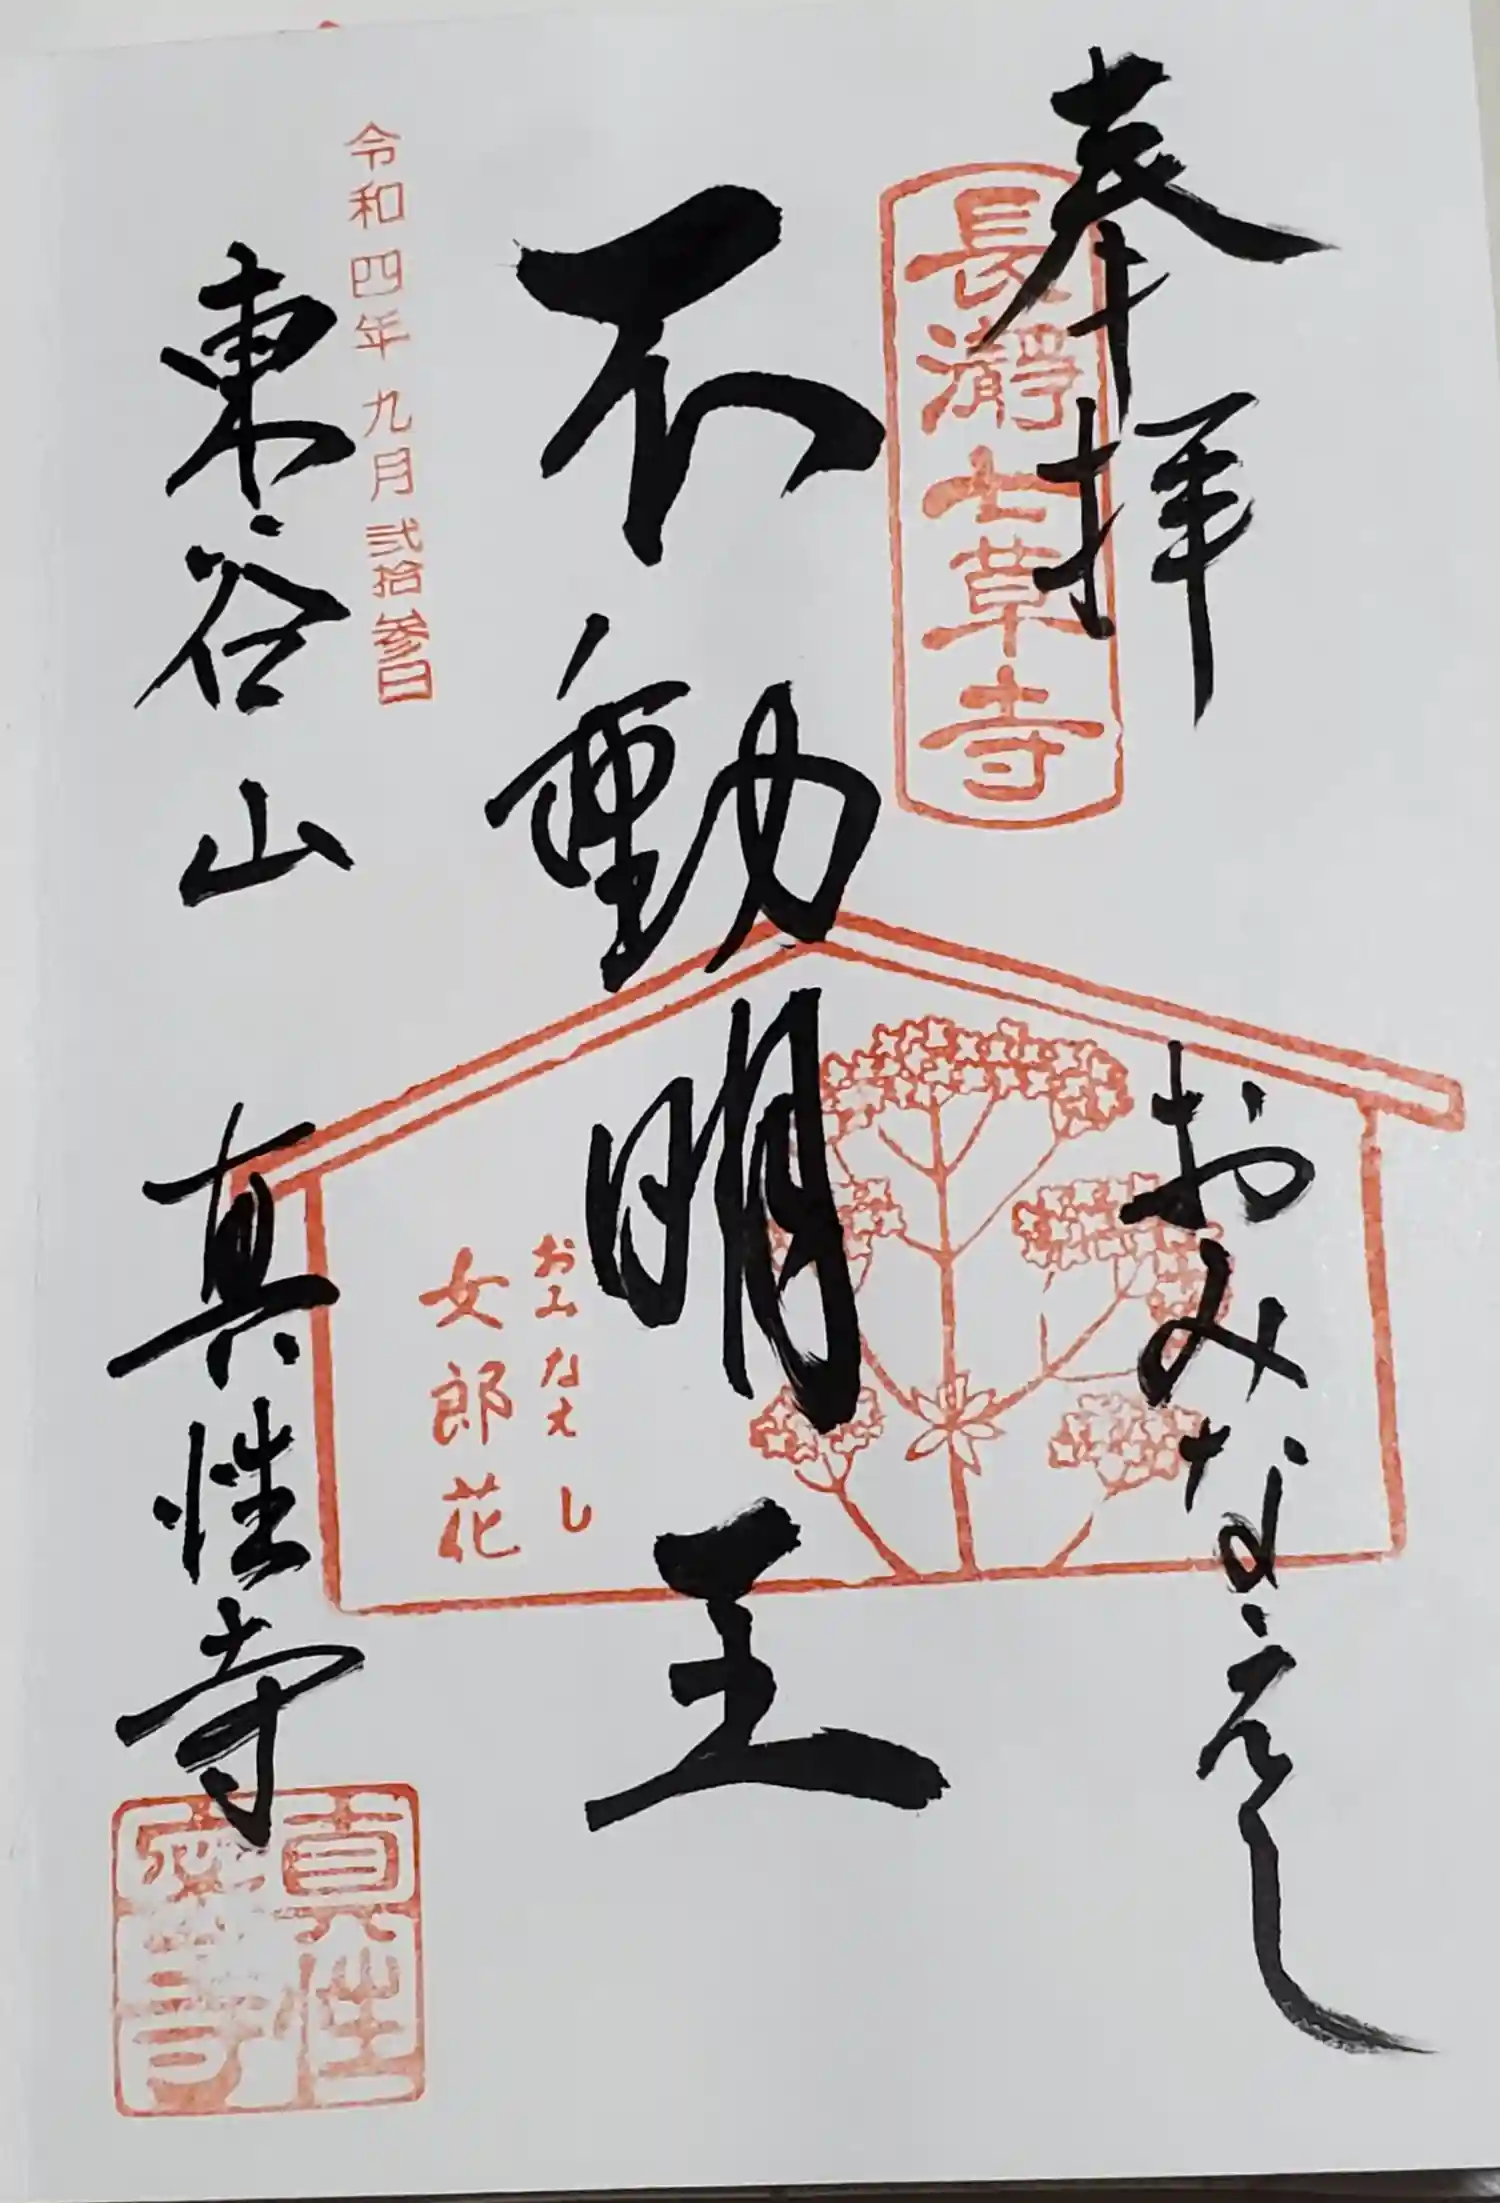 奉拝
おみなえし
長瀞七草寺
不動明王
おみなえし
女郎花
令和四年九月弐拾参日
東谷山
真性寺
真性
寺